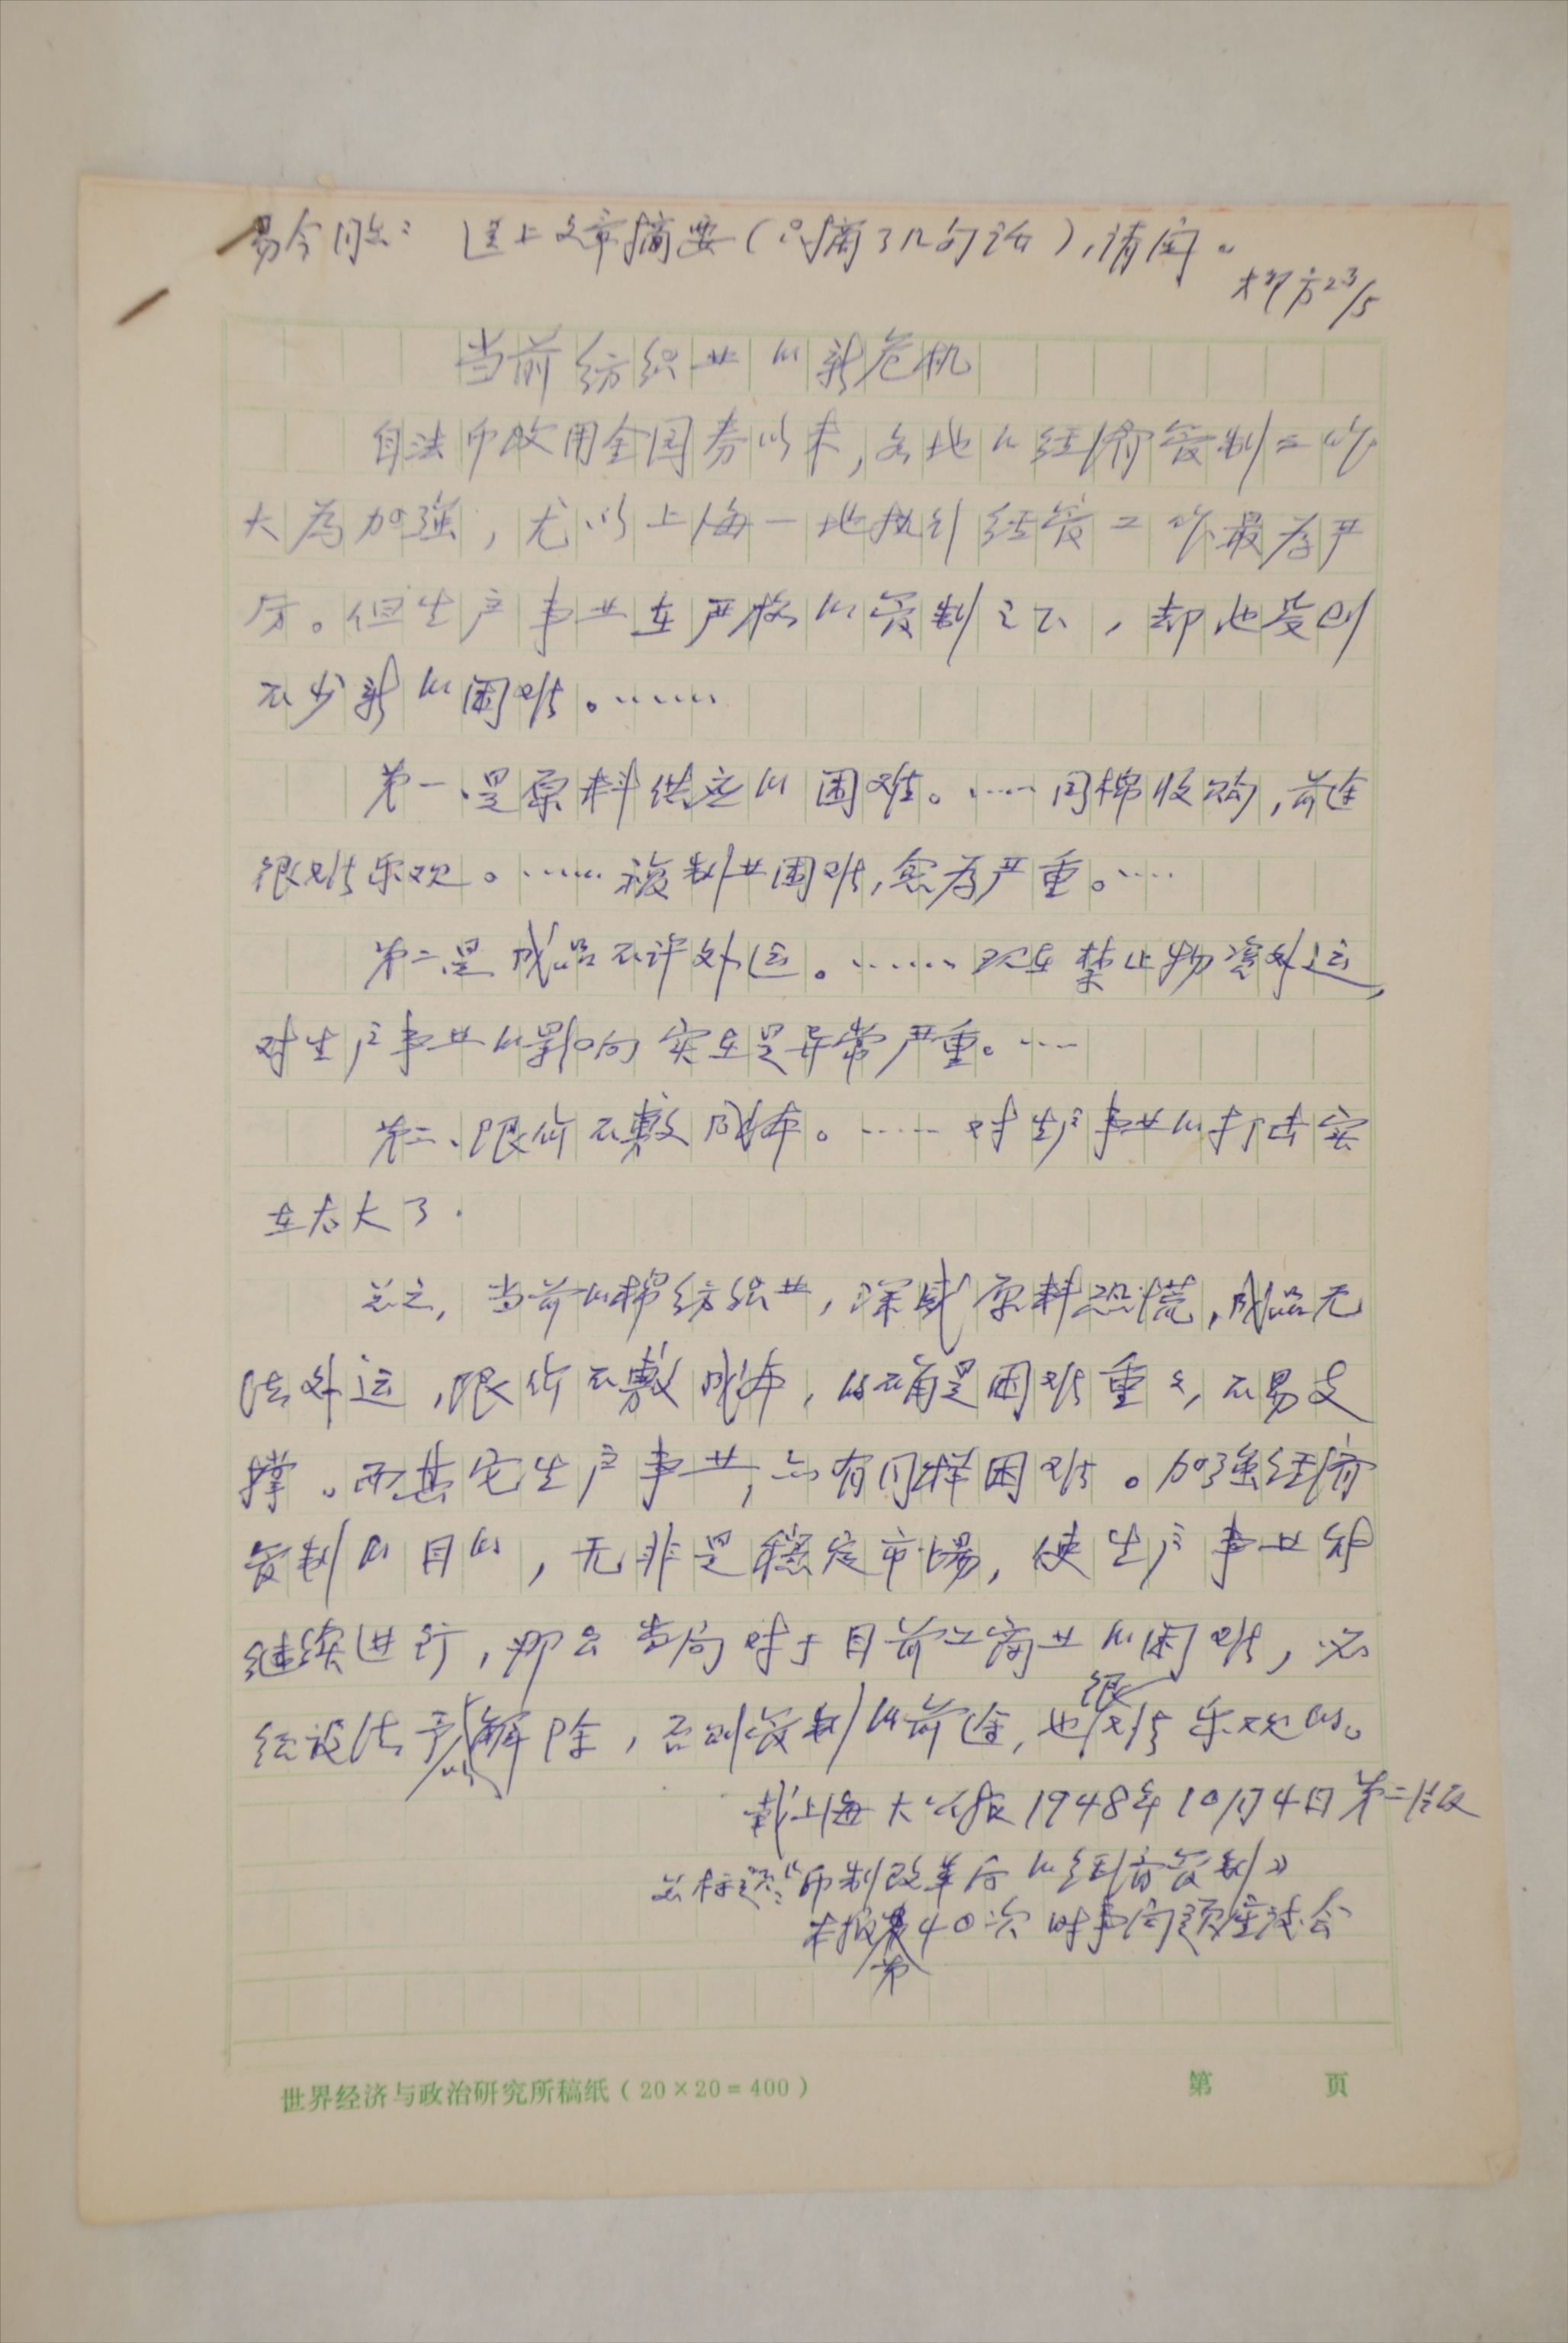 易今同志： 送上文章摘要（只摘了几句话），请阅。
柳方23/5
当前纺织业的新危机
自法币改用金圆券以来，各地的经济管制工作
大为加强，尤以上海一地执行经管工作最为严
厉。但生产事业在严格的管制之下，却也受到
不少新的困难。……
第一、是原料供应的困难。……同棉收购，前途
很难乐观。……複制业困难，愈为严重。……
第二是成品不许外运。……现在禁止物资外运，
对生产事业的影响实在是异常严重。……
第三、限价不敷成本。……对生产事业的打击实
在太大了.
总之，当前的棉纺织业，深感原料恐慌，成品无
法外运，限价不敷成本，的确是困难重重，不易支
撑。而其它生产事业，亦有同样困难。加强经济
管制的目的，无非是稳定市場，使生产事业能
继续进行，那么当局对于目前工商业的困难，必
须设法予以解除，否则管制的前途，也很难乐观的。
载上海大公报1948年10月4日第二版
总标题：“币制改革后的经济管制》
本报第40次时事问题座谈会
世界经济与政治研究所稿纸（20×20＝400）
第 页